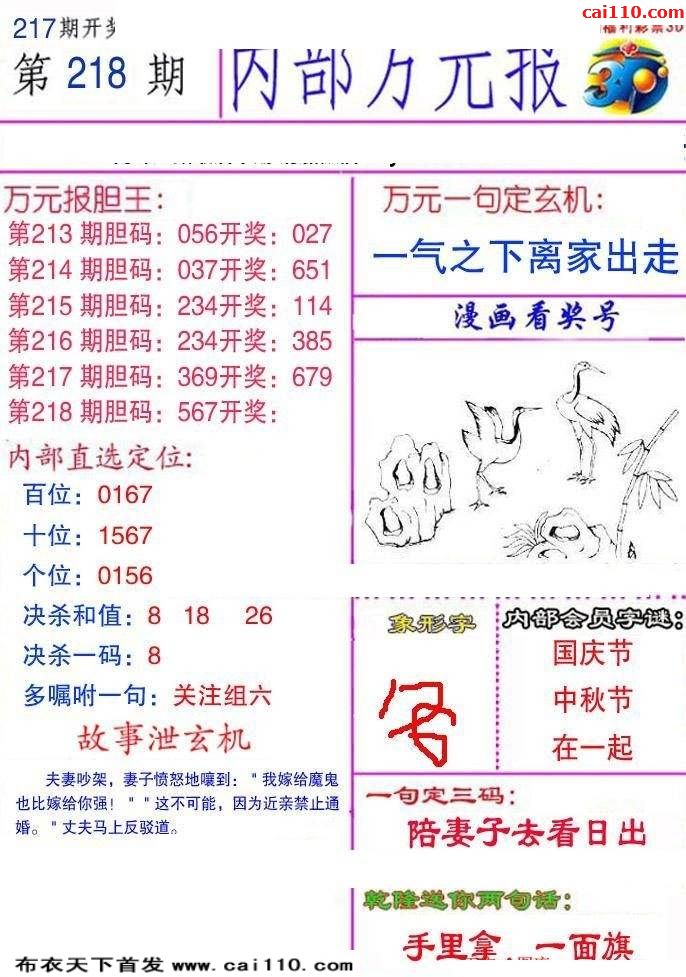 cai110.com
217期开奖
福利彩票3D
第 218 期
内部万元报
3D
万元报胆王：
第213 期胆码：056开奖：027
第214 期胆码：037开奖：651
第215 期胆码：234开奖：114
第216 期胆码：234开奖：385
第217 期胆码：369开奖：679
第218 期胆码：567开奖：
内部直选定位:
百位：0167
十位：1567
个位：0156
决杀和值：8 18 26
决杀一码：8
多嘱咐一句：关注组六
故事泄玄机
夫妻吵架，妻子愤怒地嚷到："我嫁给魔鬼
也比嫁给你强！""这不可能，因为近亲禁止通
婚。"丈夫马上反驳道。
万元一句定玄机：
一气之下离家出走
漫画看奖号
象形字
内部会员字谜：
国庆节
中秋节
在一起
一句定三码：
陪妻子去看日出
乾隆送你两句话：
手里拿 一面旗
布衣天下首发 www.cai110.com